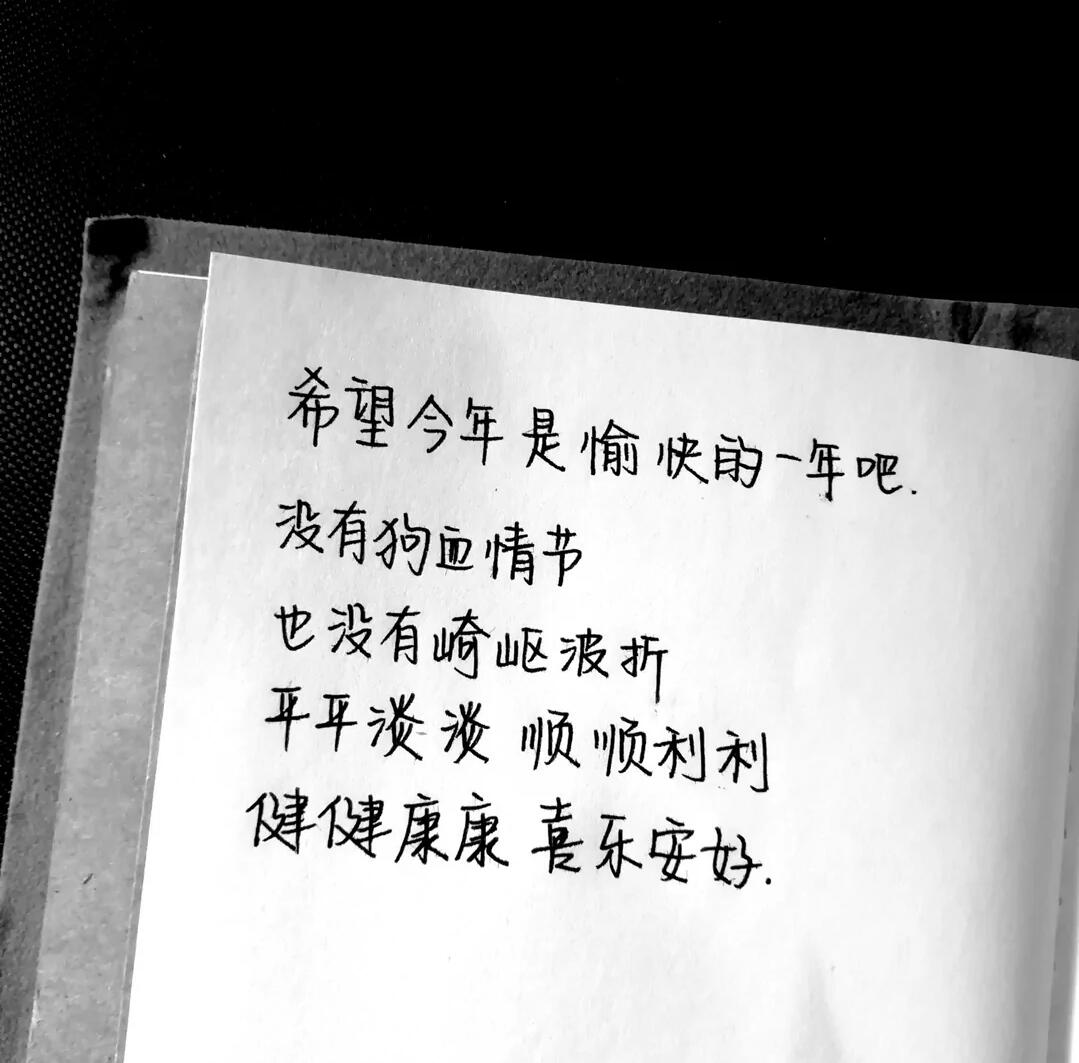 希望今年是愉快的一年吧.
没有狗血情节
也没有崎岖波折
平平淡淡 顺顺利利
健健康康 喜乐安好.